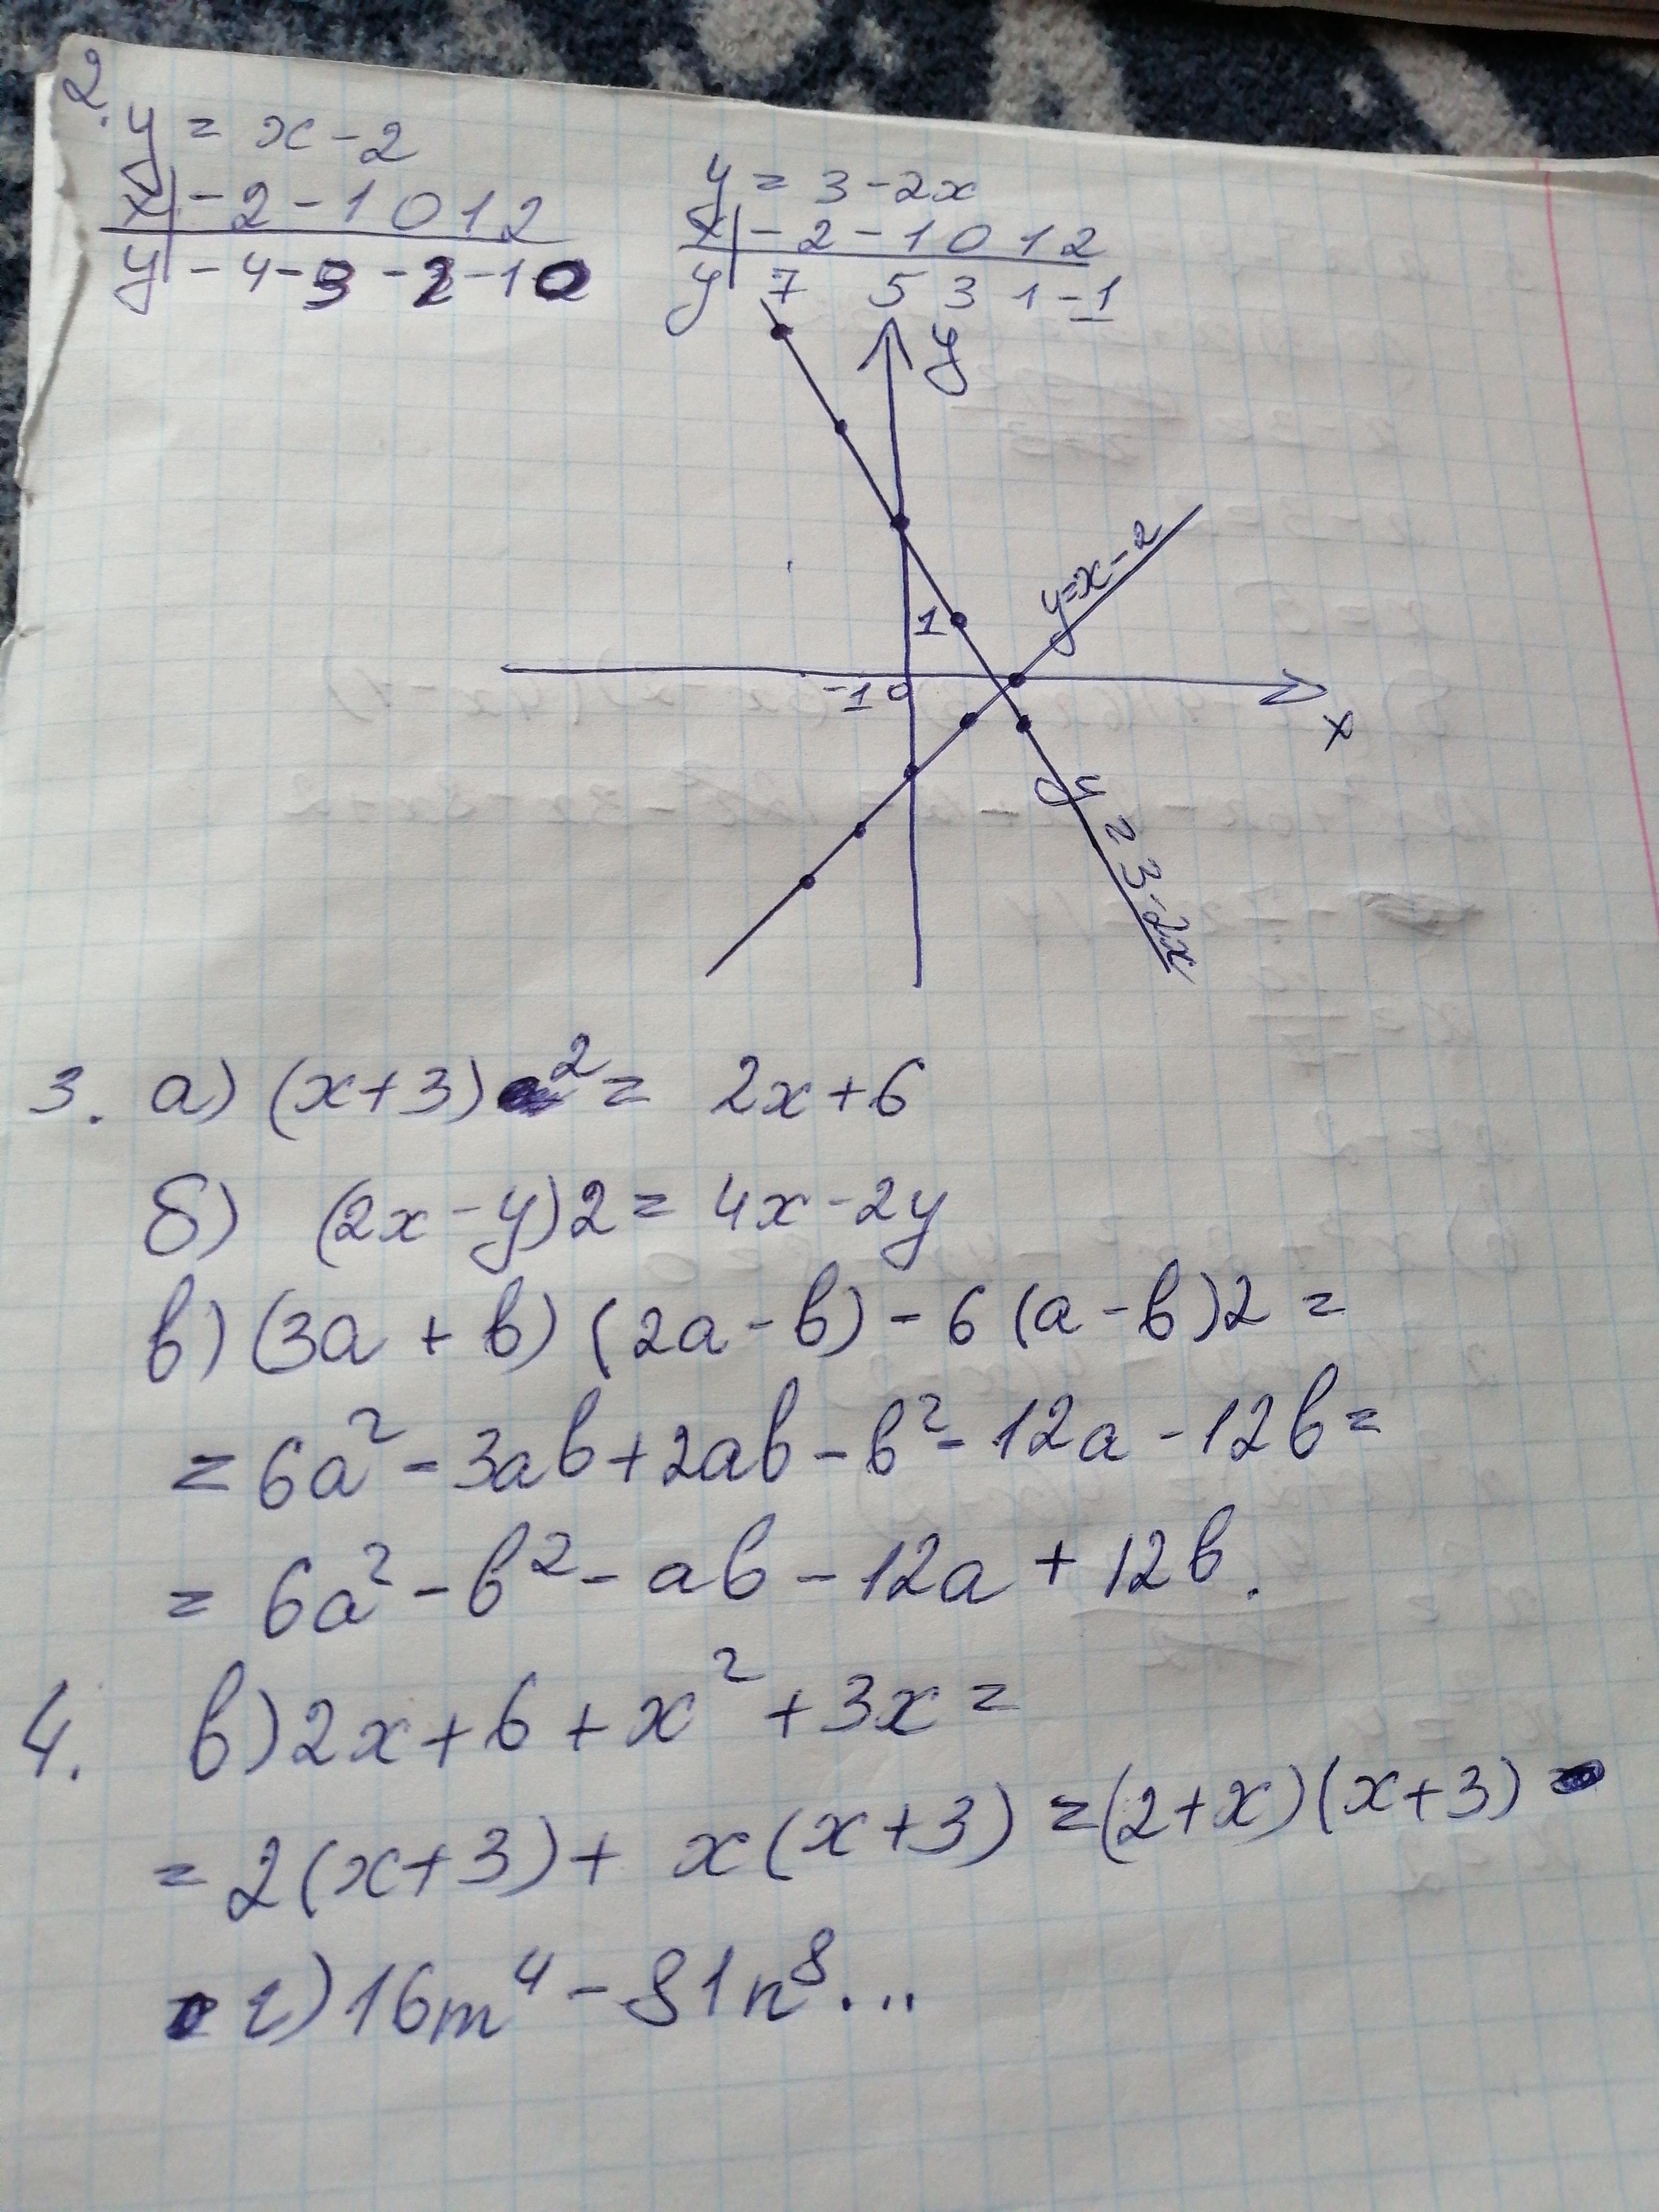 2.
y = x - 2
x | -2 -1 0 1 2
y | -4 -3 -2 -1 0
y = 3 - 2x
x | -2 -1 0 1 2
y | 7 5 3 1 -1
y
y=x-2
1
-1 0
x
y=3-2x
3. а) (x+3)² = 2x+6
б) (2x-y)2 = 4x-2y
в) (3a+b)(2a-b)-6(a-b)2 =
= 6a²-3ab+2ab-b²-12a-12b =
= 6a²-b²-ab-12a+12b.
4. в) 2x+6+x²+3x =
= 2(x+3)+x(x+3) = (2+x)(x+3)
г) 16m⁴-81n⁸...